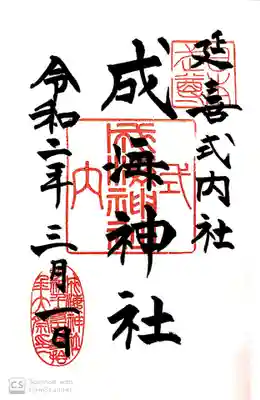 延喜式内社
成海神社
令和二年三月一日
式内
成海神社
CS Scanned with CamScanner